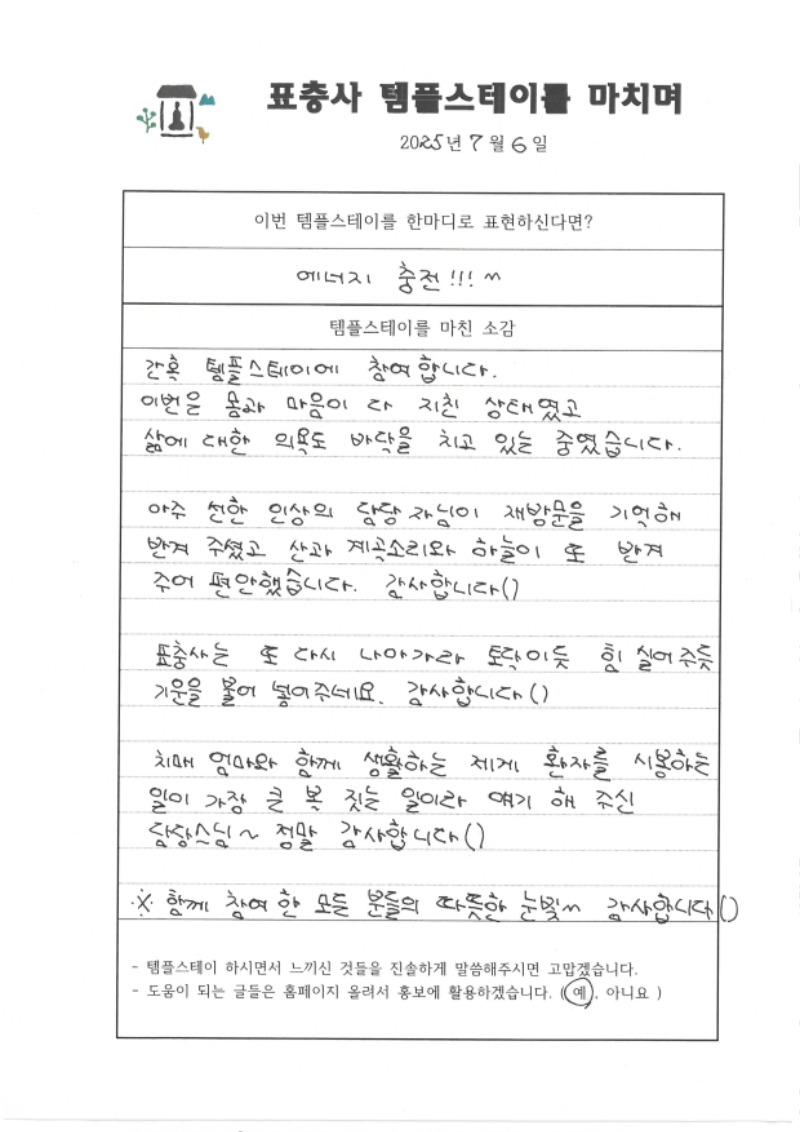 표충사 템플스테이를 마치며
2025년 7월 6일
이번 템플스테이를 한마디로 표현하신다면?
에너지 충전!!! ~
템플스테이를 마친 소감
간혹 템플스테이에 참여합니다.
이번은 몸과 마음이 다 지친 상태였고
삶에 대한 의욕도 바닥을 치고 있는 중였습니다.
아주 선한 인상의 담당자님이 재방문을 기억해
반겨 주셨고 산과 계곡소리와 하늘이 또 반겨
주어 편안했습니다. 감사합니다()
표충사는 또 다시 나아가라 토닥이듯 힘 실어주듯
기운을 불어 넣어주네요. 감사합니다()
치매 엄마와 함께 생활하는 제게 환자를 시봉하는
일이 가장 큰 복 짓는 일이라 얘기 해 주신
담당스님~ 정말 감사합니다()
※ 함께 참여한 모든 분들의 따뜻한 눈빛~ 감사합니다()
- 템플스테이 하시면서 느끼신 것들을 진솔하게 말씀해주시면 고맙겠습니다.
- 도움이 되는 글들은 홈페이지 올려서 홍보에 활용하겠습니다. ( 예, 아니요 )